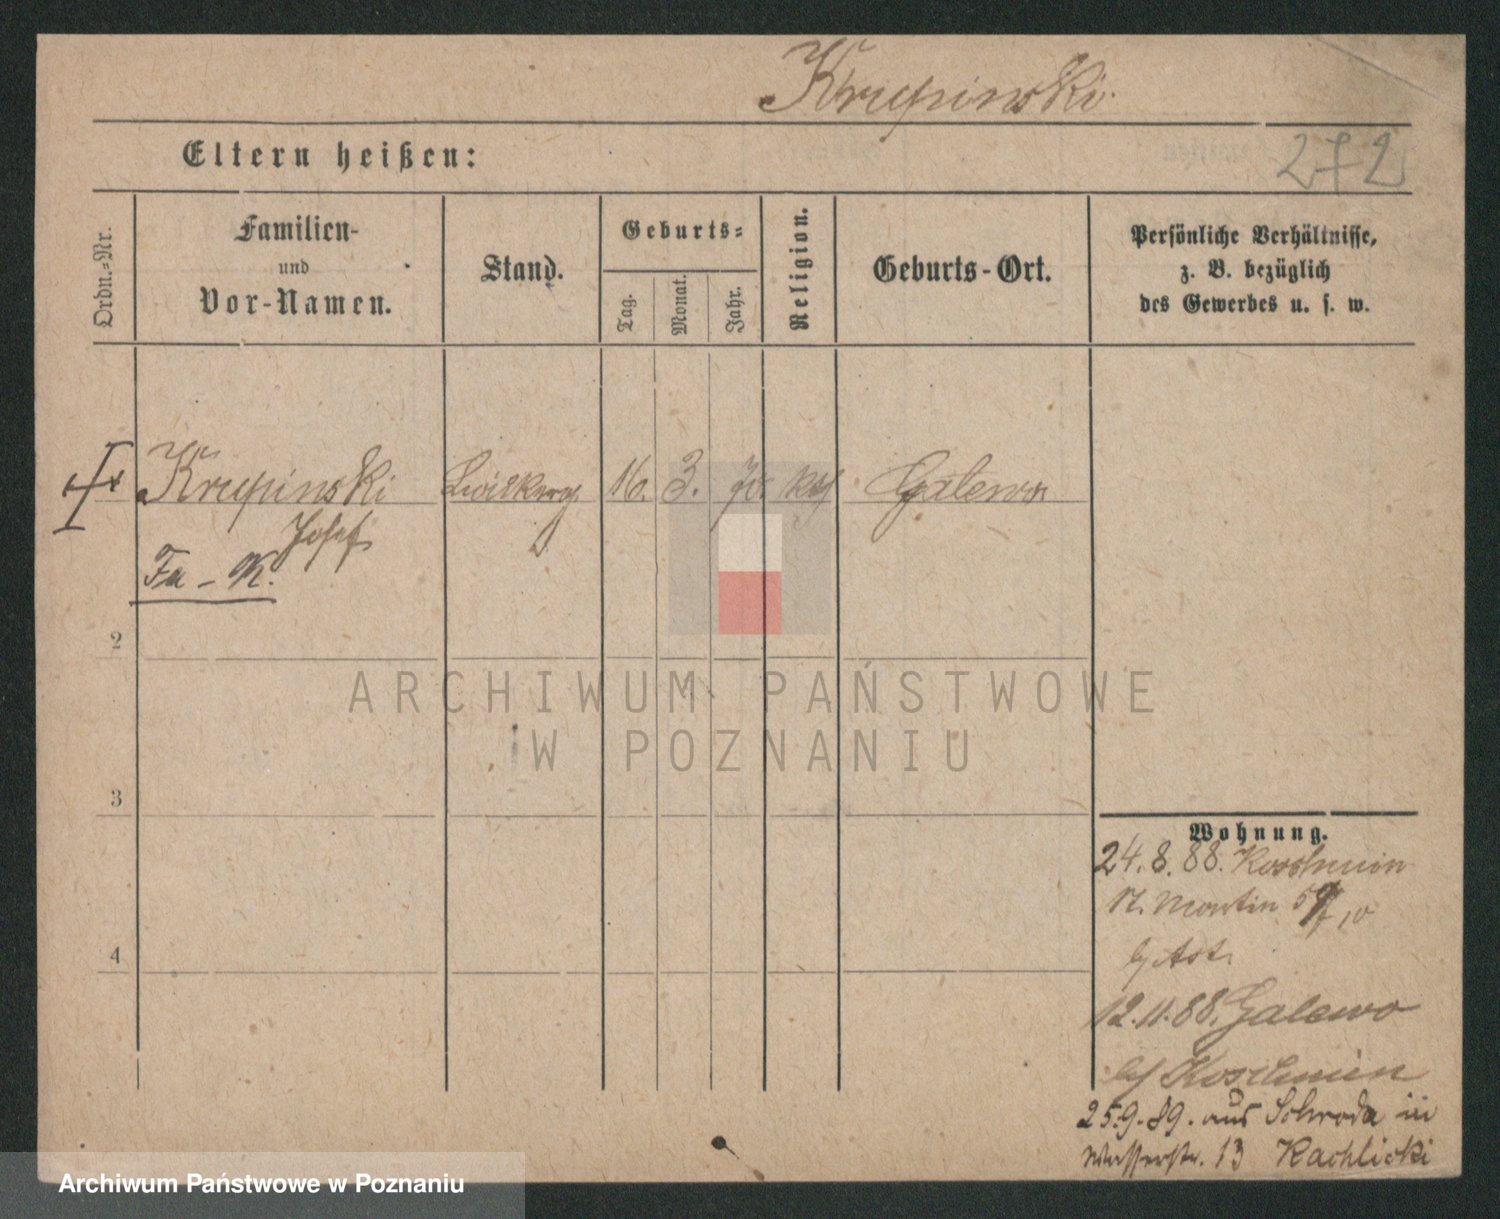 Krupinski.
272
Eltern heißen:
Ordn.=Nr.
Familien-
und
Vor-Namen.
Stand.
Geburts=
Tag.
Monat.
Jahr.
Religion.
Geburts-Ort.
Persönliche Verhältnisse,
z. B. bezüglich
des Gewerbes u. s. w.
Krupinski 16. 3. 70. kth Galewo
Josef
Fa - K.
2
3
4
Wohnung.
24.8.88. Koschmin
St. Martin
12.11.88. Galewo
Koschmin
25.9.89. aus Schroda in
Wasserstr. 13 Kachlicki
ARCHIWUM PAŃSTWOWE
W POZNANIU
Archiwum Państwowe w Poznaniu